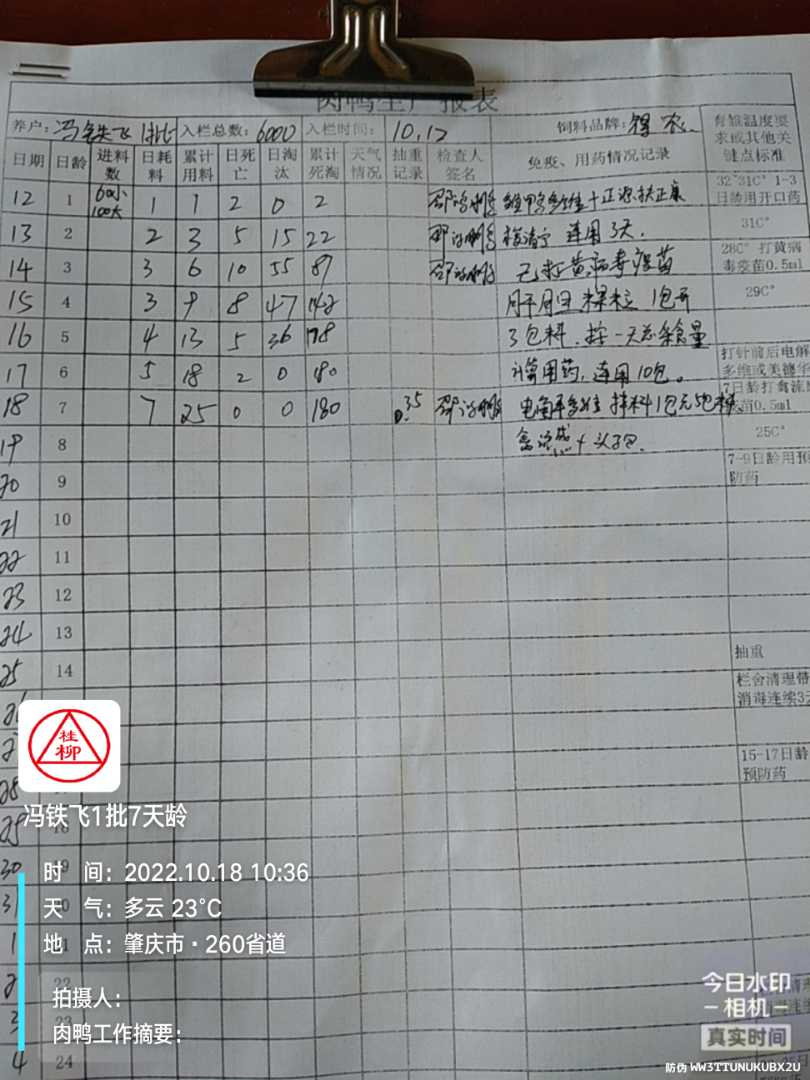 肉鸭生产报表
养户: 冯铁飞 1批 入栏总数: 6000 入栏时间: 10.12 饲料品牌: 育雏温度要求或其他关键点标准
日期 日龄 进料数 日耗料 累计用料 日死亡 日淘汰 累计死淘 天气情况 抽重记录 检查人签名 免疫、用药情况记录
12 1 60小 100大 1 1 2 0 2 32~31C° 1-3日龄用开口药
13 2 2 3 5 15 22 连用3天. 31C°
14 3 3 6 10 55 87 已打黄病毒疫苗 28C° 打黄病毒疫苗0.5ml
15 4 3 9 8 47 142 1包开 29C°
16 5 4 13 5 36 178 3包料. 按一天总采食量
17 6 5 18 2 0 180 计算用药, 连用10包。 打针前后电解多维或美德华
18 7 7 25 0 0 180 0.35 拌料1包 7日龄打禽流 苗0.5ml
19 8 禽流感+头3包. 25C°
20 9 7-9日龄用预防药
21 10
22 11
23 12
24 13
25 14 抽重
26 栏舍清理带 消毒连续3天
15-17日龄 预防药
28
30
31
1
2 22
3 23
4 24
桂柳
冯铁飞1批7天龄
时 间: 2022.10.18 10:36
天 气: 多云 23°C
地 点: 肇庆市·260省道
拍摄人:
肉鸭工作摘要:
今日水印
-相机-
真实时间
防伪 WW3TTUNUKUBX2U